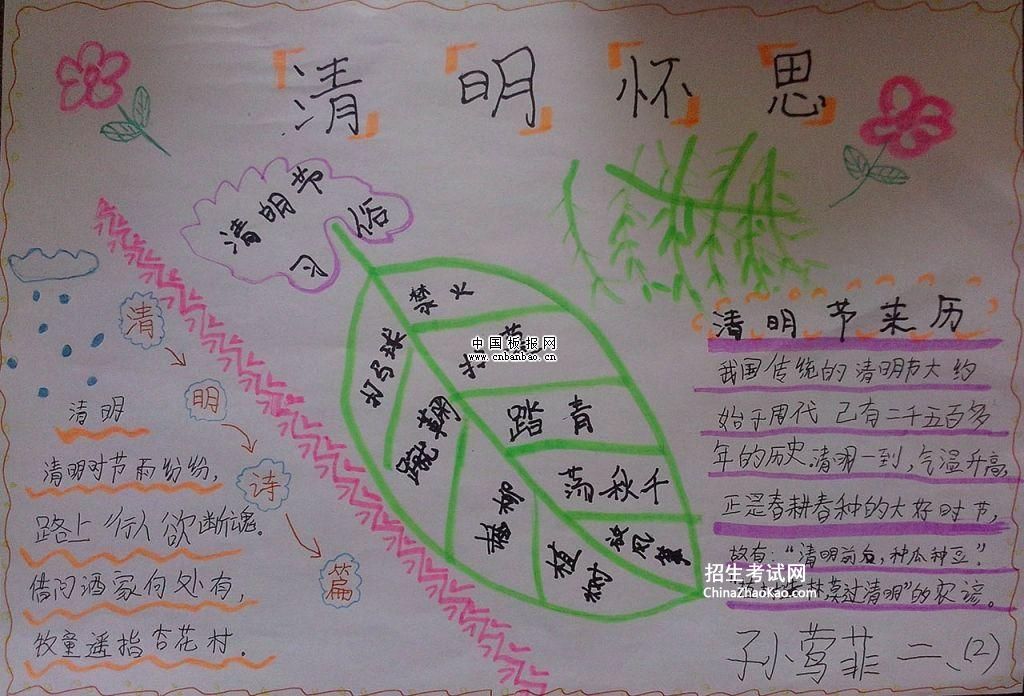 清明怀思
清明节
习俗
禁火
扫墓
踏青
荡秋千
放风筝
打马球
蹴鞠
插柳
植树
清
明
诗
篇
清明
清明时节雨纷纷,
路上行人欲断魂.
借问酒家何处有,
牧童遥指杏花村.
清明节来历
我国传统的清明节大约
始于周代 已有二千五百多
年的历史.清明一到,气温升高,
正是春耕春种的大好时节,
故有:“清明前后,种瓜种豆.”
过清明”的农谚。
孙莺菲 二、(2)
中国板报网
www.cnbanbao.cn
招生考试网
ChinaZhaoKao.com